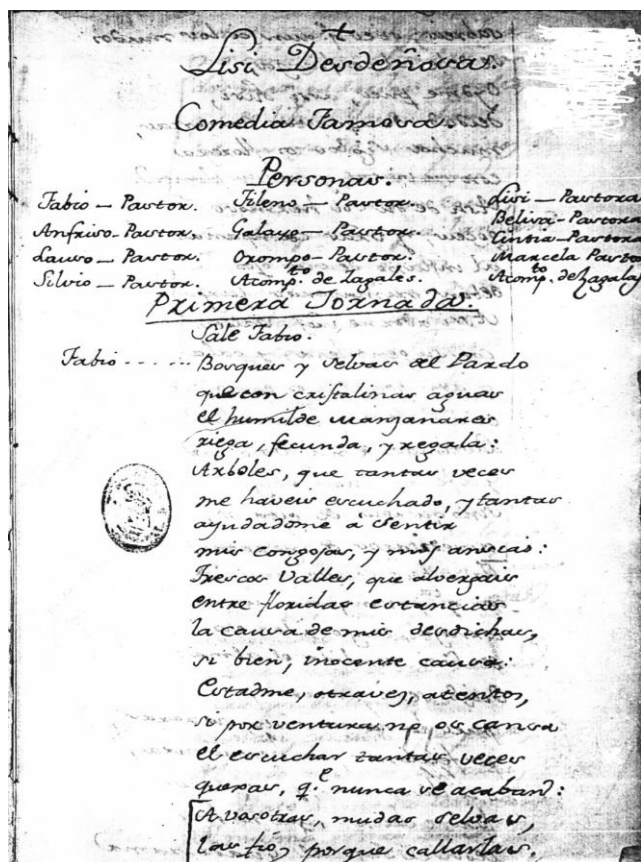 Lisi Desdeñosa.
Comedia Famosa.
Personas.
Fabio — Pastor. Fileno — Pastor. Lisi — Pastora
Anfriso — Pastor. Galayo — Pastor. Belisa — Pastora
Lauso — Pastor. Orompo — Pastor. Cintia — Pastora
Silvio — Pastor. Acomp.to de Zagales. Marcela Pasto
Acomp.to de Zagalas
Primera Jornada.
Sale Fabio.
Fabio ...... Bosques y selvas del Pardo
que con cristalinas aguas
el humilde Manzanares
riega, fecunda, y regala:
Arboles, que tantas veces
me haveis escuchado, y tantas
ayudadome à sentir
mis congojas, y mis ansias:
Frescos Valles, que alvergais
entre floridas estancias
la causa de mis desdichas,
si bien, inocente causa:
Estadme, otravez, atentos,
si por ventura no os cansa
el escuchar tantas veces
quexas, q.e nunca se acaban:
A vosotras, mudas selvas,
las fio, porque callarlas,